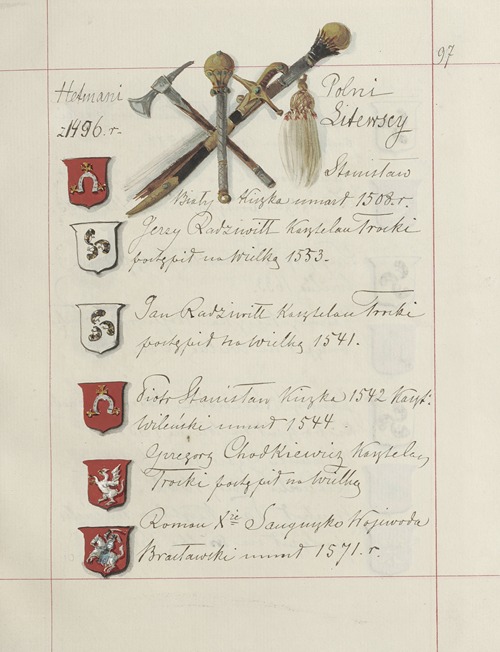 97
Hetmani Polni
z 1496. r. Litewscy
Stanisław
Biały Kiszka umarł 1508. r.
Jerzy Radziwiłł Kasztelan Trocki
postąpił na Wielką 1553.
Jan Radziwiłł Kasztelan Trocki
postąpił na Wielką 1541.
Piotr Stanisław Kiszka 1542 Kaszt:
Wileński umarł 1544.
Gregory Chodkiewicz Kasztelan
Trocki postąpił na Wielką
Roman Xże Sanguszko Wojewoda
Bracławski umarł 1571. r.